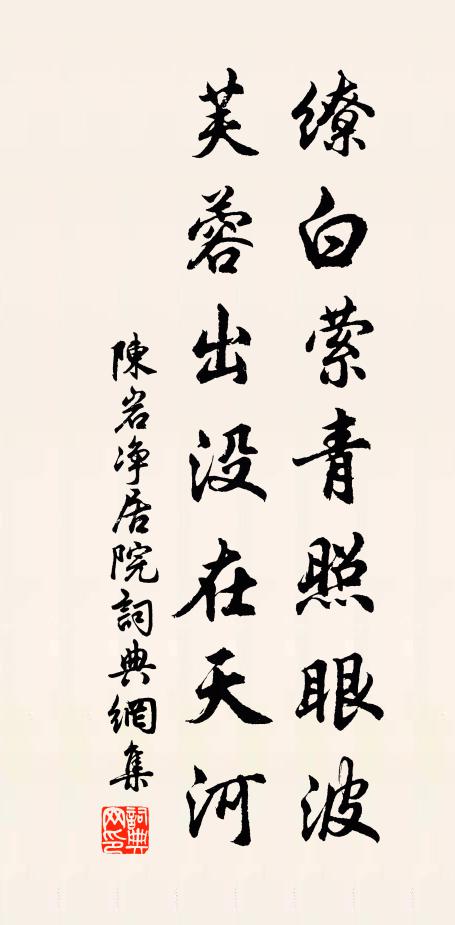 缭白萦青照眼波
芙蓉出没在天河
陳岩净居院詞典網集
詞典网印